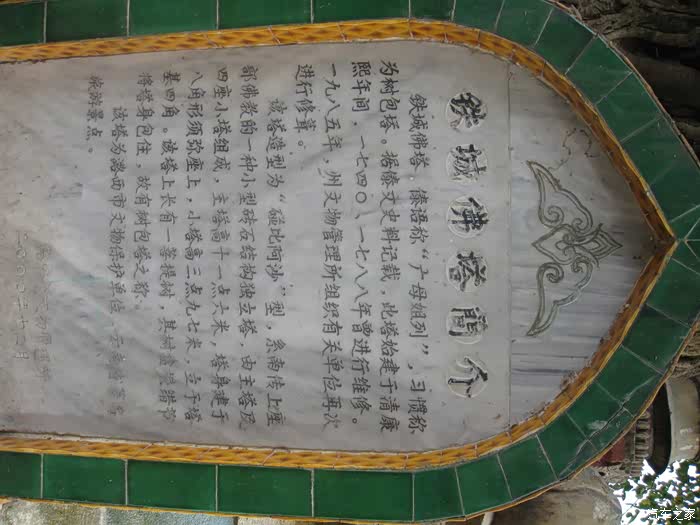 铁城佛塔简介
铁城佛塔，傣语称“广母姐列”，习惯称
为树包塔。据傣文史料记载，此塔始建于清康
熙年间，一七四〇、一七八八年曾进行维修。
一九八五年，州文物管理所组织有关单位再次
进行修葺。
该塔造型为“碰比阿沙”型，系南传上座
部佛教的一种小型砖石结构独立塔，由主塔及
四座小塔组成，主塔高十一点六米，塔身建于
八角形须弥座上，小塔高三点九七米，立于塔
基四角。该塔上长有一菩提树，其树盘根错节
将塔身包住，故有树包塔之称。
该塔为潞西市文物保护单位
旅游景点。
二〇〇〇年十二月
汽车之家